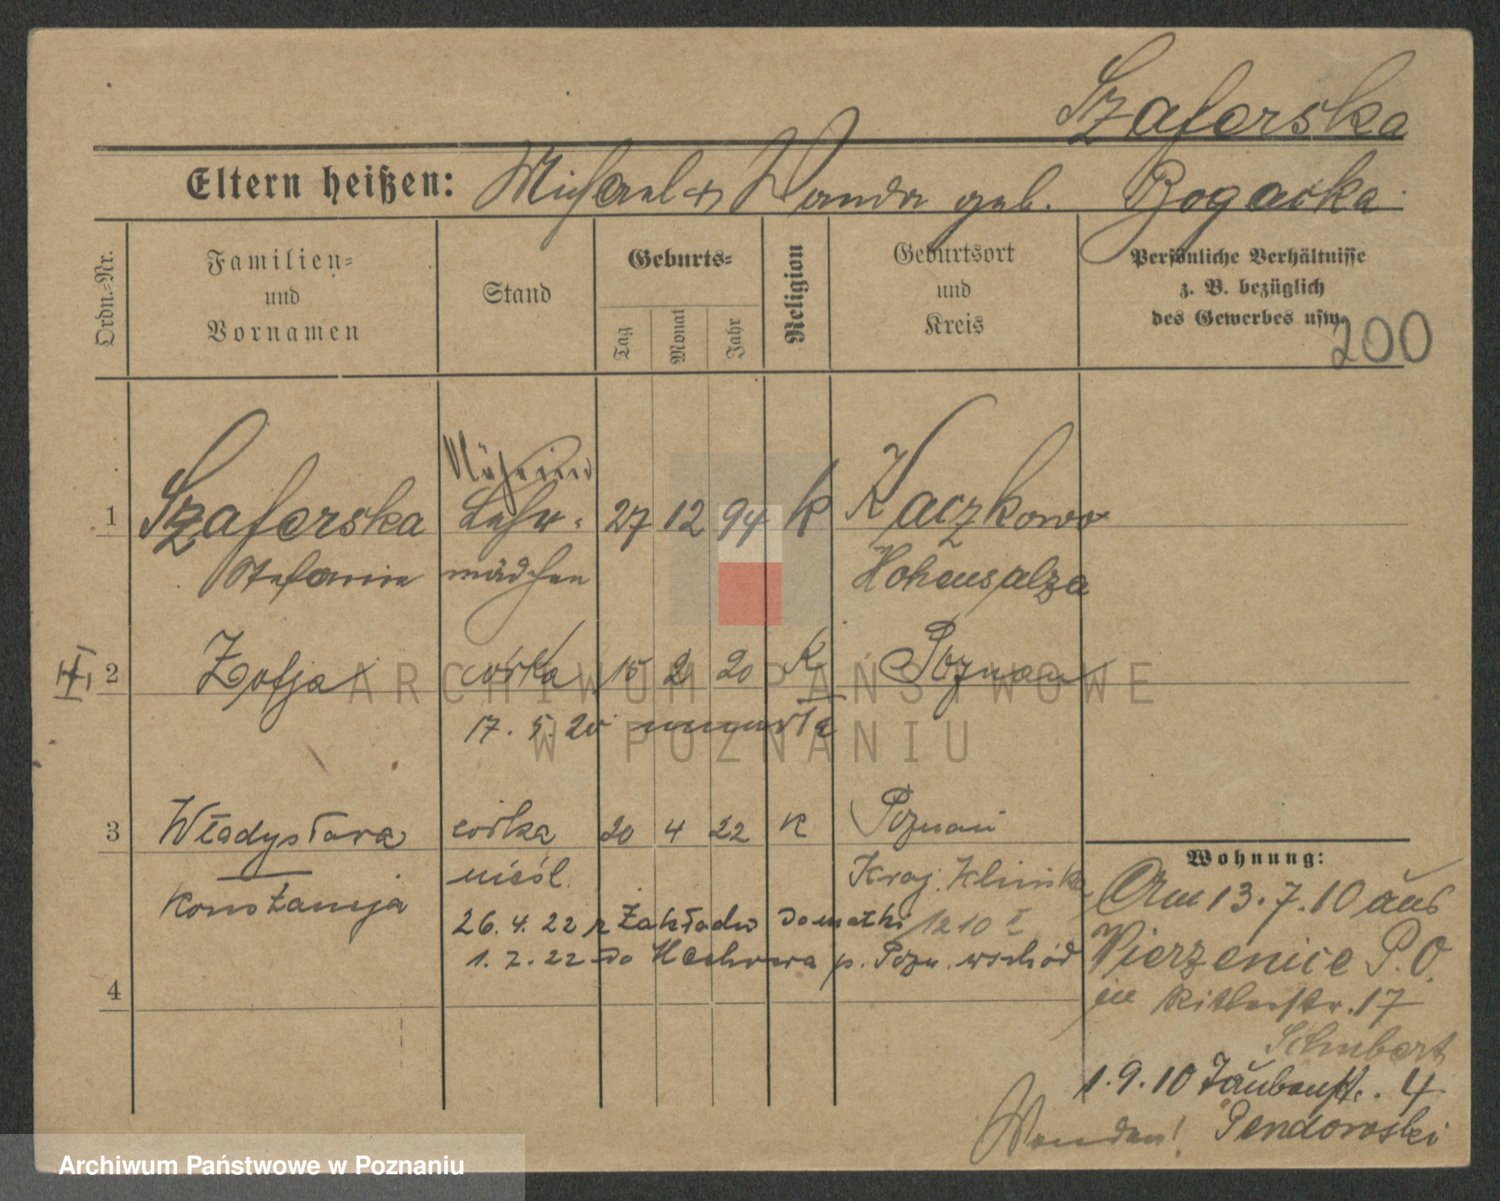 Szaferska
Eltern heißen: Michael u Wanda geb. Bogacka
Ordn.-Nr.
Familien-
und
Vornamen
Stand
Geburts-
Tag
Monat
Jahr
Religion
Geburtsort
und
Kreis
Persönliche Verhältnisse
z. B. bezüglich
des Gewerbes usw.
200
Näherin
1 Szaferska Lehr- 27 12 94 k Kaczkowo
Stefanie mädchen Hohensalza
2 Zofja córka 15 2 20 K Poznań
17. 5. 20 umarła
3 Władysława córka 20 4 22 k Poznań
Konstancja nieśl.
26. 4. 22 z Zakładu do matki 1210 I
1. 7. 22 do p. Pozn. wschód
4
Wohnung:
Am 13. 7. 10 aus
Wierzenice P. O.
in Ritterstr. 17
Schubert
1. 9. 10 Taubenstr. 4
Wenden! Pendowski
ARCHIWUM PAŃSTWOWE
W POZNANIU
Archiwum Państwowe w Poznaniu